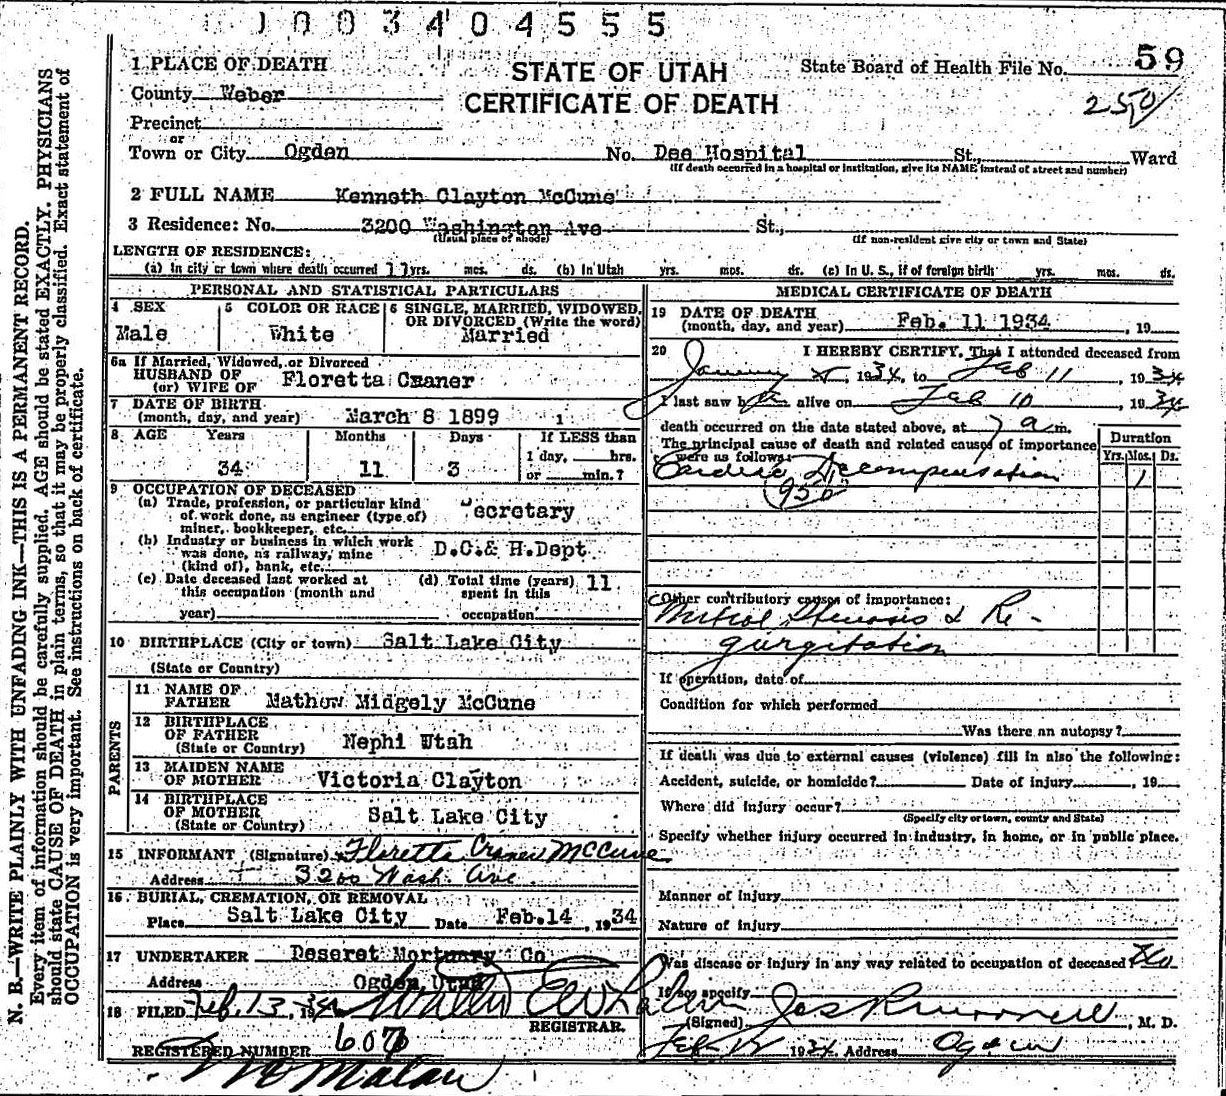 1003404555
1 PLACE OF DEATH
STATE OF UTAH
CERTIFICATE OF DEATH
State Board of Health File No. 59
County Weber
250
Precinct
or
Town or City Ogden No. Dee Hospital St., Ward
(If death occurred in a hospital or institution, give its NAME instead of street and number)
2 FULL NAME Kenneth Clayton McCune
3 Residence: No. 3200 Washington Ave St.,
(Usual place of abode) (If non-resident give city or town and State)
LENGTH OF RESIDENCE:
(a) In city or town where death occurred 11 yrs. mos. ds. (b) In Utah yrs. mos. ds. (c) In U. S., if of foreign birth yrs. mos. ds.
PERSONAL AND STATISTICAL PARTICULARS
4 SEX
Male
5 COLOR OR RACE
White
6 SINGLE, MARRIED, WIDOWED,
OR DIVORCED (Write the word)
Married
6a If Married, Widowed, or Divorced
HUSBAND OF
(or) WIFE OF Floretta Craner
7 DATE OF BIRTH
(month, day, and year) March 8 1899
8 AGE Years Months Days If LESS than
1 day, hrs.
34 11 3 or min.?
9 OCCUPATION OF DECEASED
(a) Trade, profession, or particular kind
of work done, as engineer (type of)
miner, bookkeeper, etc. Secretary
(b) Industry or business in which work
was done, as railway, mine
(kind of), bank, etc. D.C.& H.Dept
(c) Date deceased last worked at
this occupation (month and
year)
(d) Total time (years)
spent in this
occupation 11
10 BIRTHPLACE (City or town) Salt Lake City
(State or Country)
PARENTS
11 NAME OF
FATHER Mathow Midgely McCune
12 BIRTHPLACE
OF FATHER
(State or Country) Nephi Utah
13 MAIDEN NAME
OF MOTHER Victoria Clayton
14 BIRTHPLACE
OF MOTHER
(State or Country) Salt Lake City
15 INFORMANT (Signature) Floretta Craner McCune
Address 3200 Wash. Ave
16 BURIAL, CREMATION, OR REMOVAL
Place Salt Lake City Date Feb.14, 1934
17 UNDERTAKER Deseret Mortuary Co
Address Ogden, Utah
18 FILED Feb. 13, 1934
REGISTRAR.
REGISTERED NUMBER 607
MEDICAL CERTIFICATE OF DEATH
19 DATE OF DEATH
(month, day, and year) Feb. 11 1934, 19
20 I HEREBY CERTIFY, That I attended deceased from
January, 1934, to Feb 11, 1934
I last saw him alive on Feb 10, 1934
death occurred on the date stated above, at 7 a m.
The principal cause of death and related causes of importance
were as follows:
Duration
Yrs. Mos. Ds.
Cardiac Decompensation 1
Other contributory causes of importance:
Mitral Stenosis & Re-
gurgitation
If operation, date of
Condition for which performed
Was there an autopsy?
If death was due to external causes (violence) fill in also the following:
Accident, suicide, or homicide? Date of injury, 19
Where did injury occur?
(Specify city or town, county and State)
Specify whether injury occurred in industry, in home, or in public place.
Manner of injury
Nature of injury
Was disease or injury in any way related to occupation of deceased? No
If so, specify
(Signed), M. D.
1934 Address Ogden
N. B.—WRITE PLAINLY WITH UNFADING INK—THIS IS A PERMANENT RECORD.
Every item of information should be carefully supplied. AGE should be stated EXACTLY. PHYSICIANS
should state CAUSE OF DEATH in plain terms, so that it may be properly classified. Exact statement of
OCCUPATION is very important. See instructions on back of certificate.